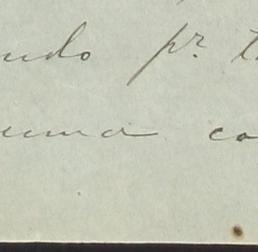 udo pr. t
uma co